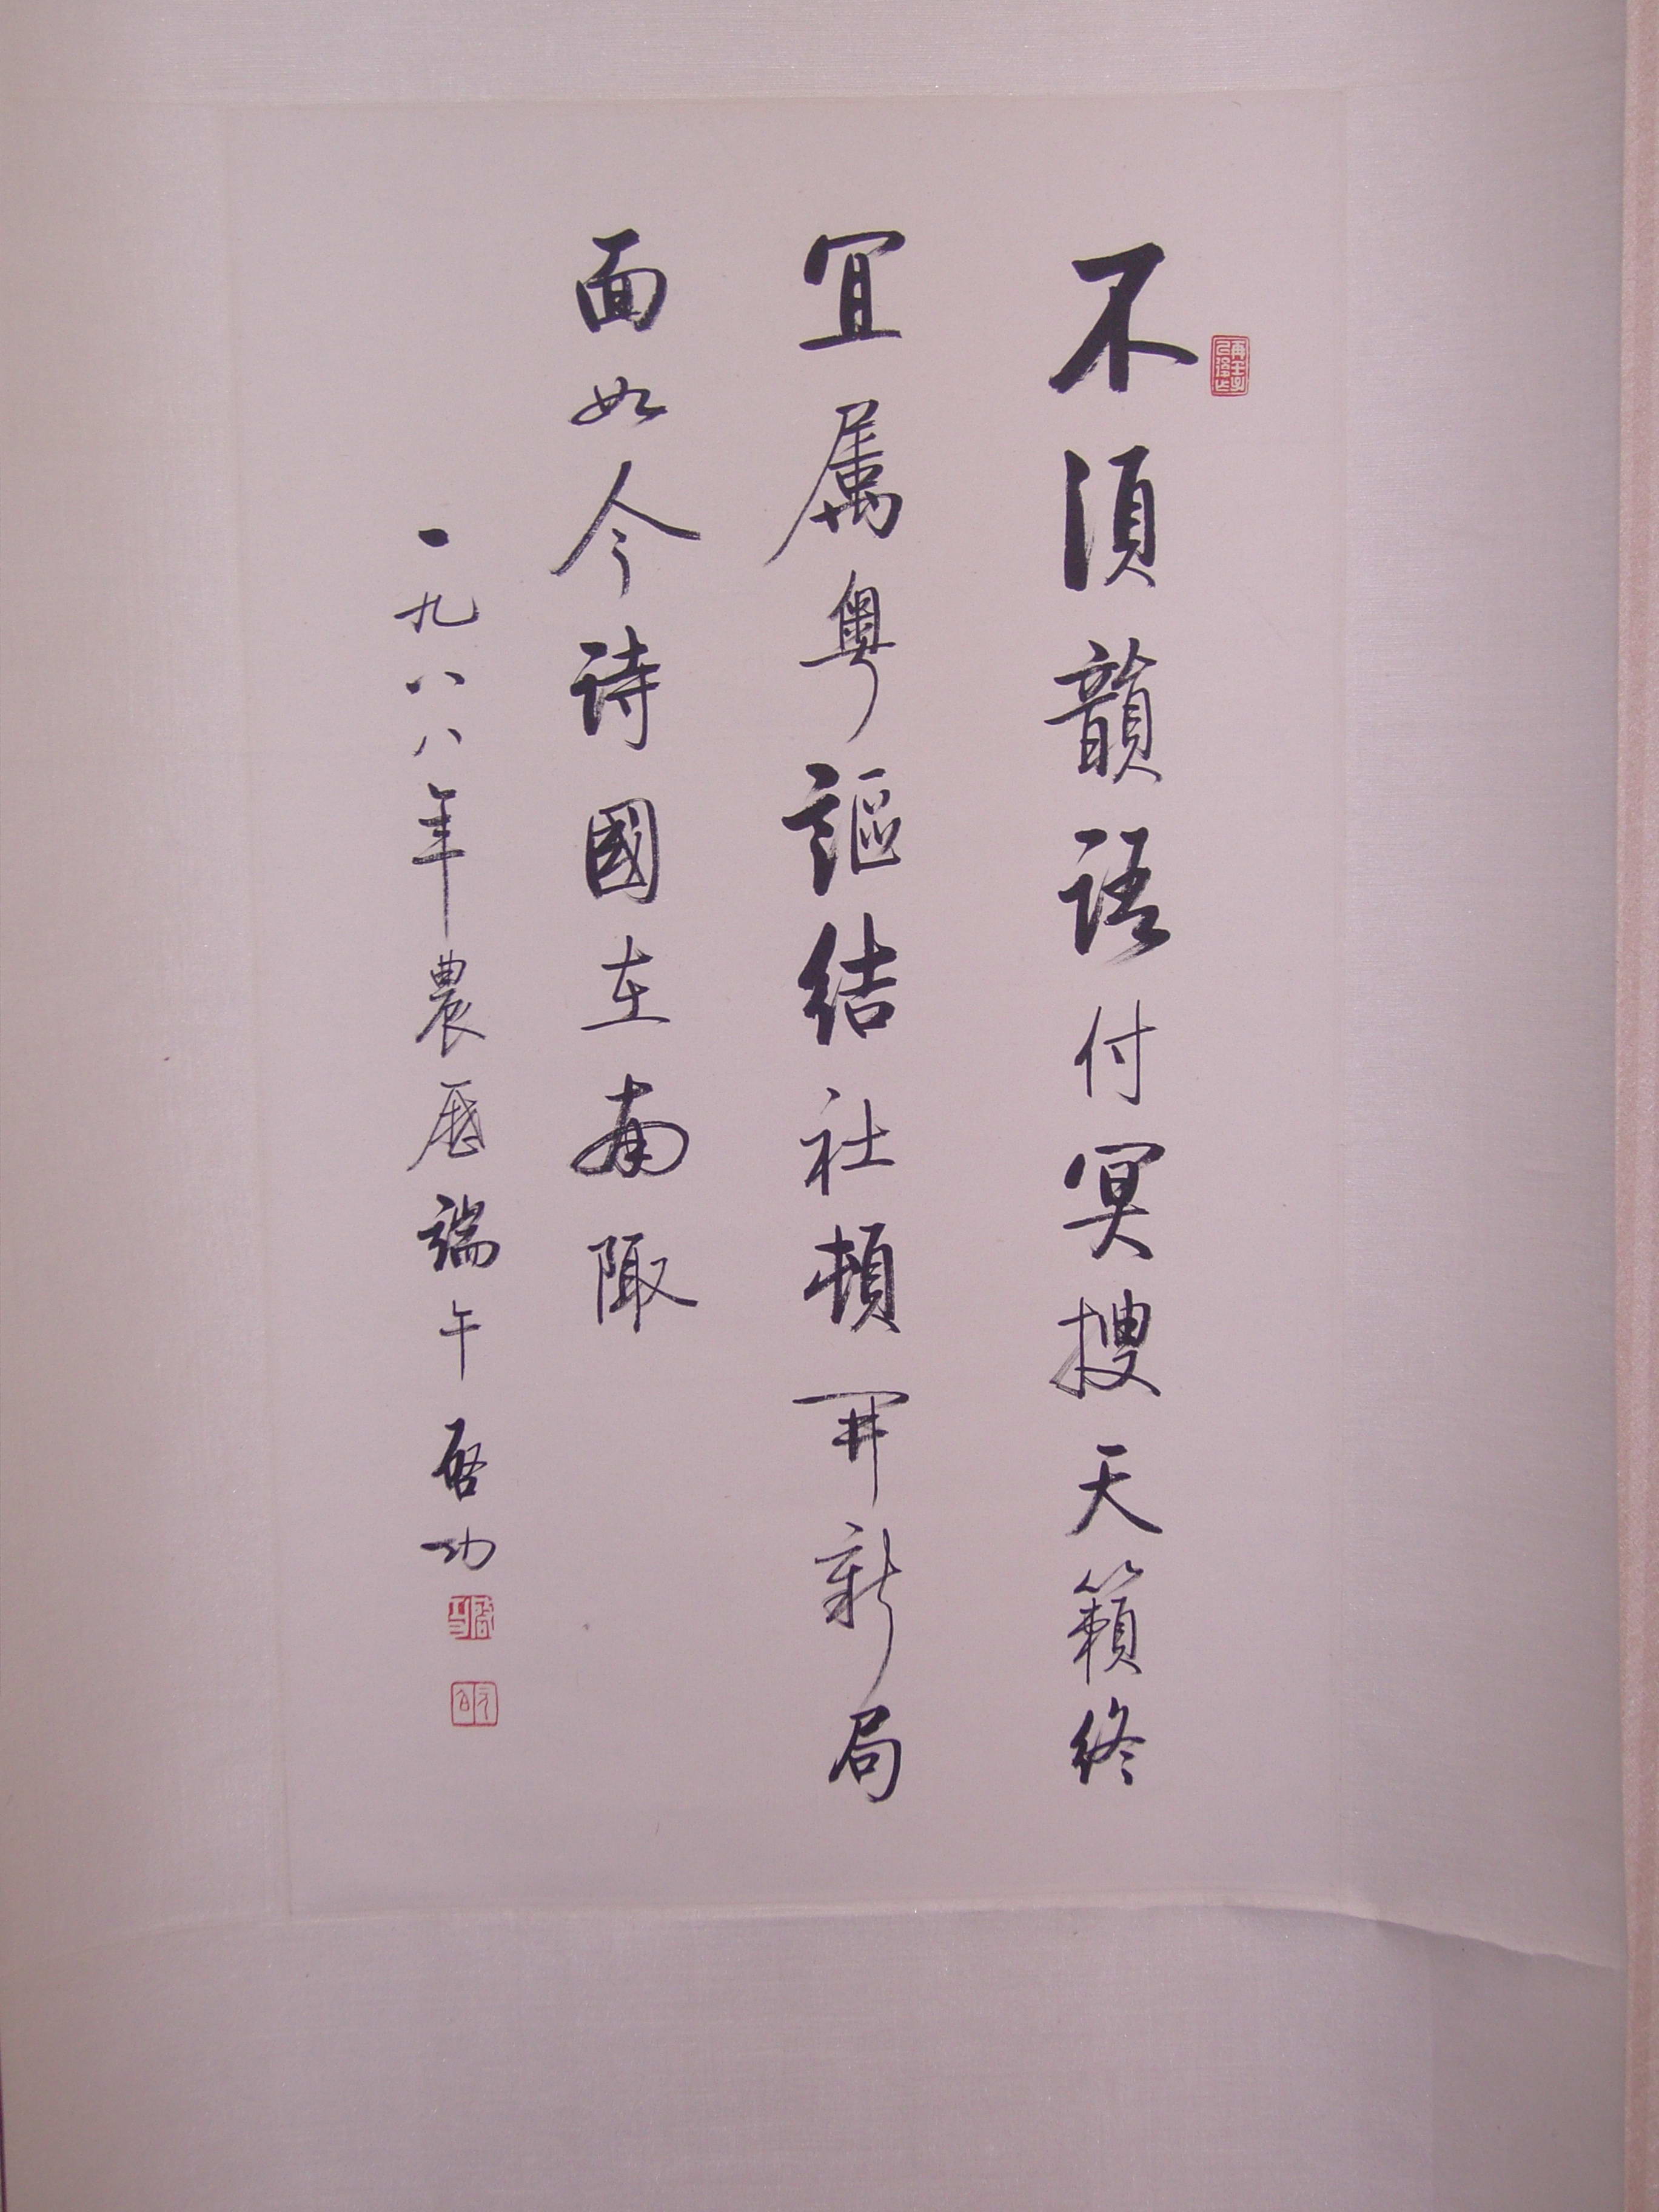 不須韻語付冥搜天籟終
宜屬粤謳結社頓開新局
面如今詩國在南陬
一九八八年農曆端午啟功